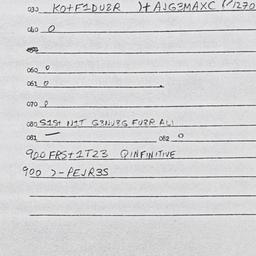 030 KO+F1DU2R )+ AJG3MAXC (/1270
040 0
060 0
061 0
070 0
080 S1S+ N1T G3NU3G FU2R ALL
081 — 082 0
900 FRS+1T23 QINFINITIVE
900 )-PEJR3S